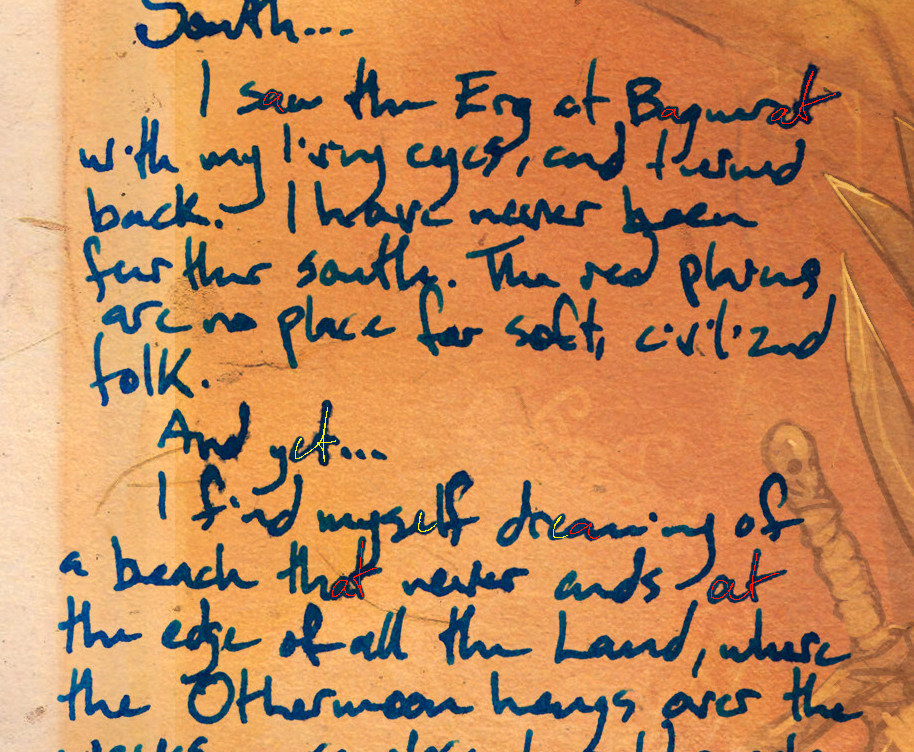 South...
I saw the Erg at Bagurat
with my living eyes, and turned
back. I have never been
further south. The red plains
are no place for soft, civilized
folk.
And yet...
I find myself dreaming of
a beach that never ends at
the edge of all the Land, where
the Othermoon hangs over the